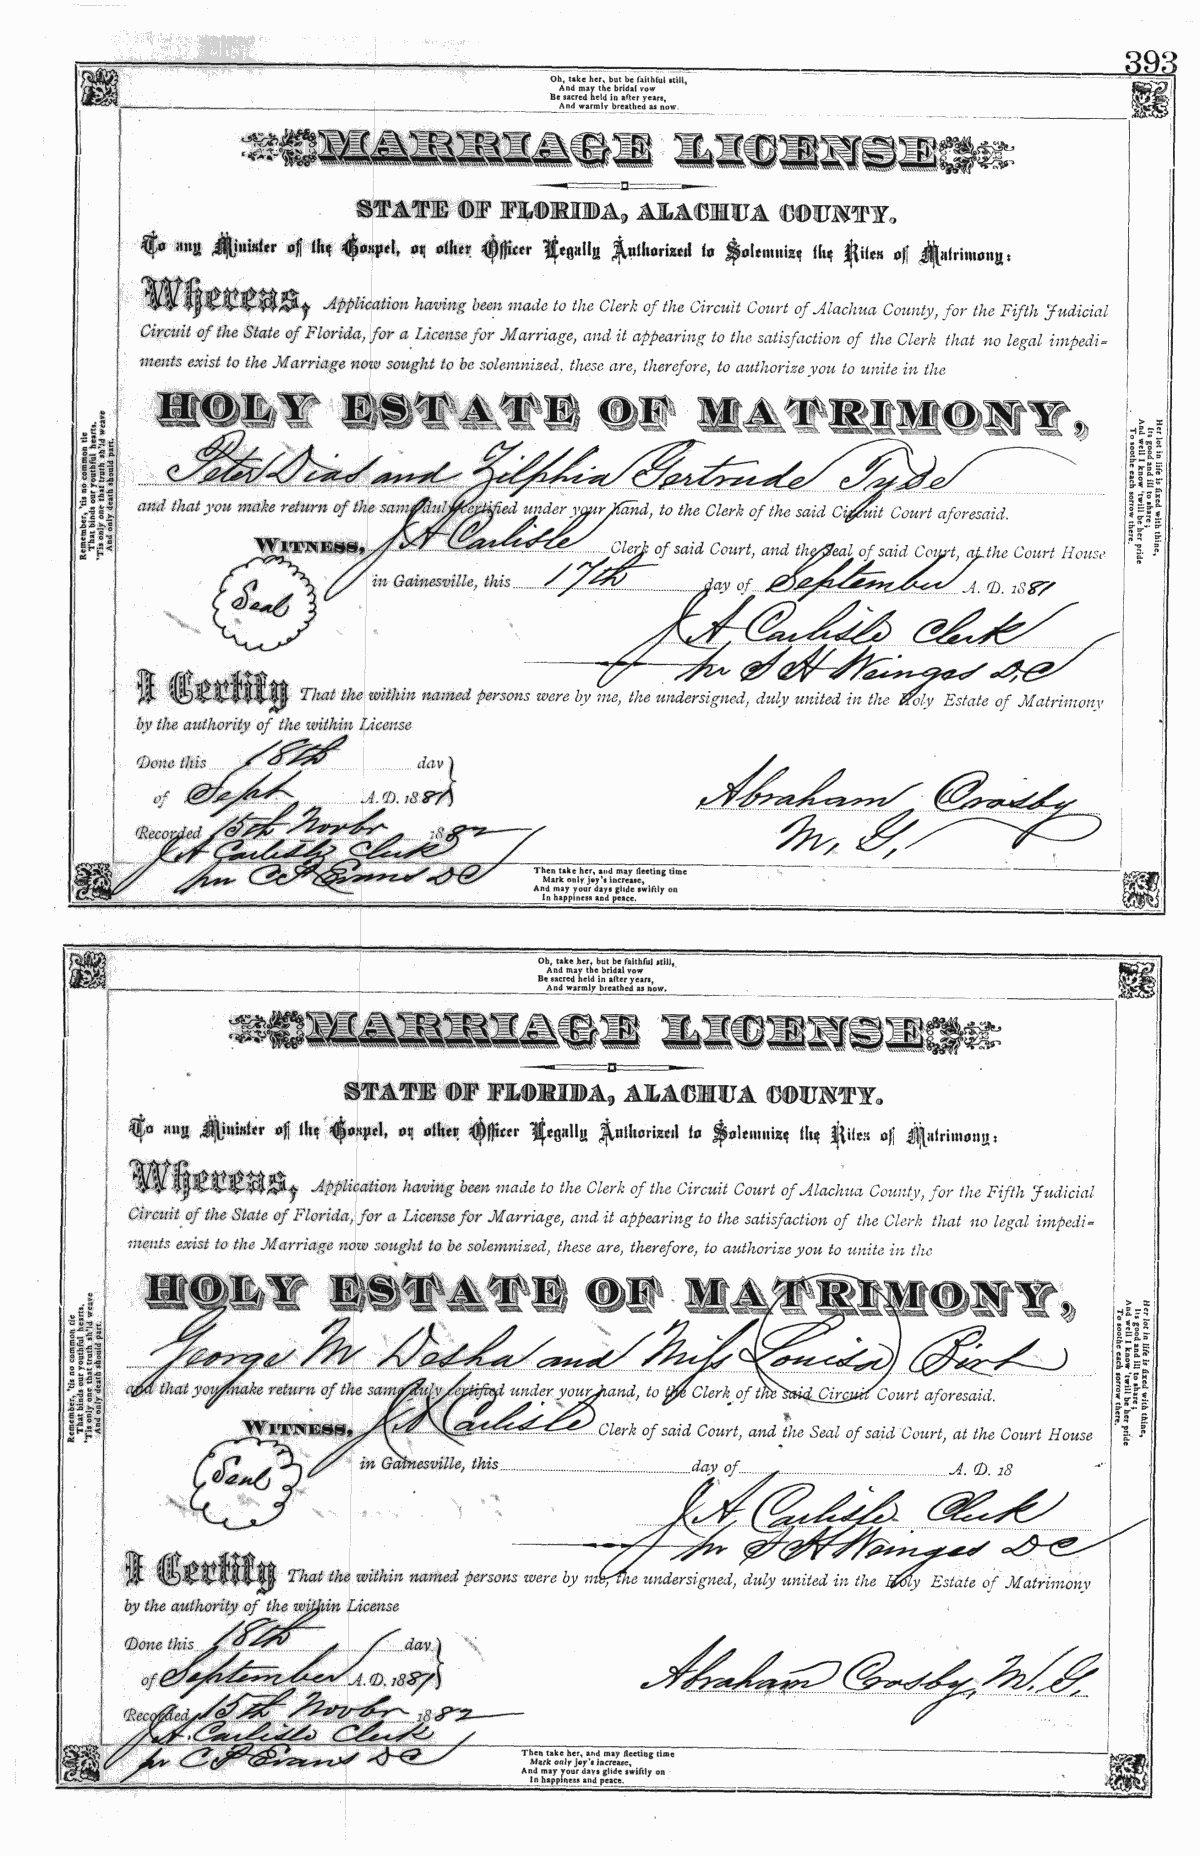 393
Oh, take her, but be faithful still,
And may the bridal vow
Be sacred held in after years,
And warmly breathed as now.
MARRIAGE LICENSE
STATE OF FLORIDA, ALACHUA COUNTY.
To any Minister of the Gospel, or other Officer Legally Authorized to Solemnize the Rites of Matrimony:
Whereas, Application having been made to the Clerk of the Circuit Court of Alachua County, for the Fifth Judicial
Circuit of the State of Florida, for a License for Marriage, and it appearing to the satisfaction of the Clerk that no legal impedi=
ments exist to the Marriage now sought to be solemnized, these are, therefore, to authorize you to unite in the
HOLY ESTATE OF MATRIMONY,
Peter Dias and Zilphia Gertrude Tyde
and that you make return of the same duly certified under your hand, to the Clerk of the said Circuit Court aforesaid.
WITNESS, J A Carlisle Clerk of said Court, and the Seal of said Court, at the Court House
in Gainesville, this 17th day of September A. D. 1881
Seal
J A Carlisle Clerk
per S H Weinges D.C
I Certify That the within named persons were by me, the undersigned, duly united in the Holy Estate of Matrimony
by the authority of the within License
Done this 18th day
of Sept A.D. 1881
Abraham Crosby
M. G.
Recorded 15th Novbr 1882
J A Carlisle Clerk
per C P Evans DC
Remember, 'tis no common tie
That binds our youthful hearts,
'Tis only one that truth sh'ld weave
And only death should part.
Her lot in life is fixed with thine,
Its good and ill to share,
And well I know 'twill be her pride
To soothe each sorrow there.
Then take her, and may fleeting time
Mark only joy's increase,
And may your days glide swiftly on
In happiness and peace.
Oh, take her, but be faithful still,
And may the bridal vow
Be sacred held in after years,
And warmly breathed as now.
MARRIAGE LICENSE
STATE OF FLORIDA, ALACHUA COUNTY.
To any Minister of the Gospel, or other Officer Legally Authorized to Solemnize the Rites of Matrimony:
Whereas, Application having been made to the Clerk of the Circuit Court of Alachua County, for the Fifth Judicial
Circuit of the State of Florida, for a License for Marriage, and it appearing to the satisfaction of the Clerk that no legal impedi=
ments exist to the Marriage now sought to be solemnized, these are, therefore, to authorize you to unite in the
HOLY ESTATE OF MATRIMONY,
George M Desha and Miss Louisa Birt
and that you make return of the same duly certified under your hand, to the Clerk of the said Circuit Court aforesaid.
WITNESS, J A Carlisle Clerk of said Court, and the Seal of said Court, at the Court House
in Gainesville, this day of A. D. 18
Seal
J A Carlisle Clerk
per S H Weinges D C
I Certify That the within named persons were by me, the undersigned, duly united in the Holy Estate of Matrimony
by the authority of the within License
Done this 18th day
of September A.D. 1881
Abraham Crosby, M. G.
Recorded 15th Novbr 1882
J A. Carlisle Clerk
per C P Evans D C
Remember, 'tis no common tie
That binds our youthful hearts,
'Tis only one that truth sh'ld weave
And only death should part.
Her lot in life is fixed with thine,
Its good and ill to share;
And well I know 'twill be her pride
To soothe each sorrow there.
Then take her, and may fleeting time
Mark only joy's increase,
And may your days glide swiftly on
In happiness and peace.